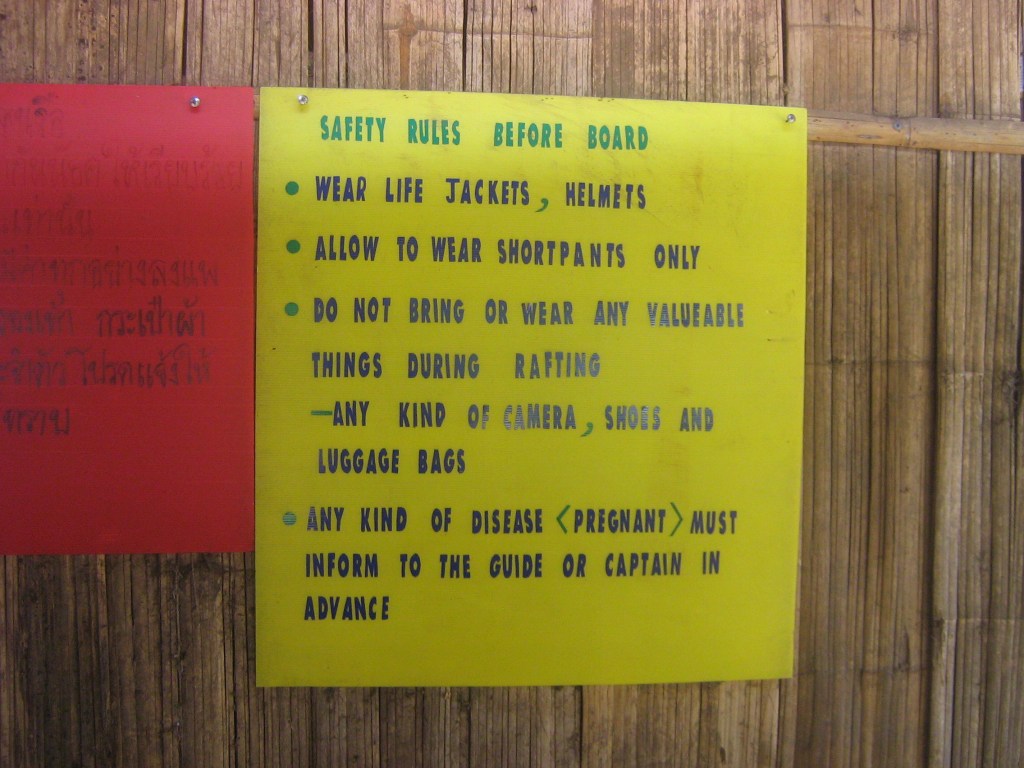 SAFETY RULES BEFORE BOARD
• WEAR LIFE JACKETS, HELMETS
• ALLOW TO WEAR SHORTPANTS ONLY
• DO NOT BRING OR WEAR ANY VALUEABLE
THINGS DURING RAFTING
—ANY KIND OF CAMERA, SHOES AND
LUGGAGE BAGS
• ANY KIND OF DISEASE <PREGNANT> MUST
INFORM TO THE GUIDE OR CAPTAIN IN
ADVANCE
ให้เรียบร้อย
กระเป๋าผ้า
โปรดแจ้งให้
ทราบ